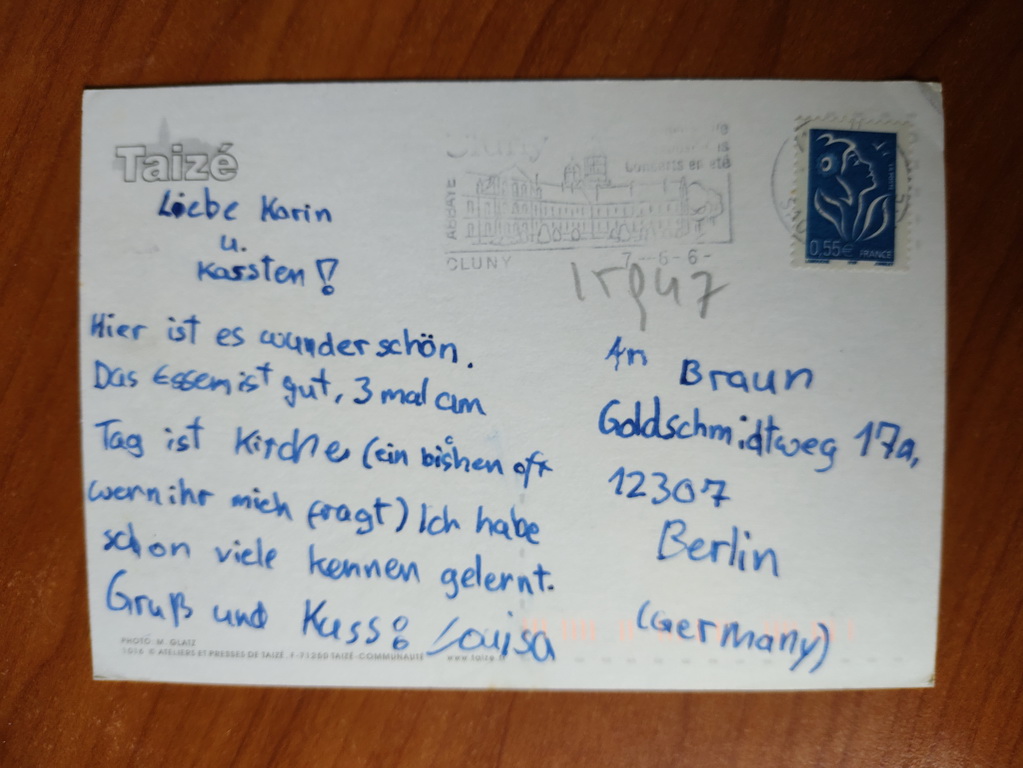 Taizé
Liebe Karin
u.
Karsten!
Hier ist es wunderschön.
Das Essen ist gut, 3 mal am
Tag ist Kirche (ein bishen oft
wenn ihr mich fragt) Ich habe
schon viele kennen gelernt.
Gruß und Kuss! Louisa
PHOTO: M. GLATZ
© ATELIERS ET PRESSES DE TAIZÉ, F-71250 TAIZÉ-COMMUNAUTÉ www.taize.fr
Cluny
concerts en été
ABBAYE
CLUNY 7-6-6-
0,55€ FRANCE
An Braun
Goldschmidtweg 17a,
12307
Berlin
(Germany)